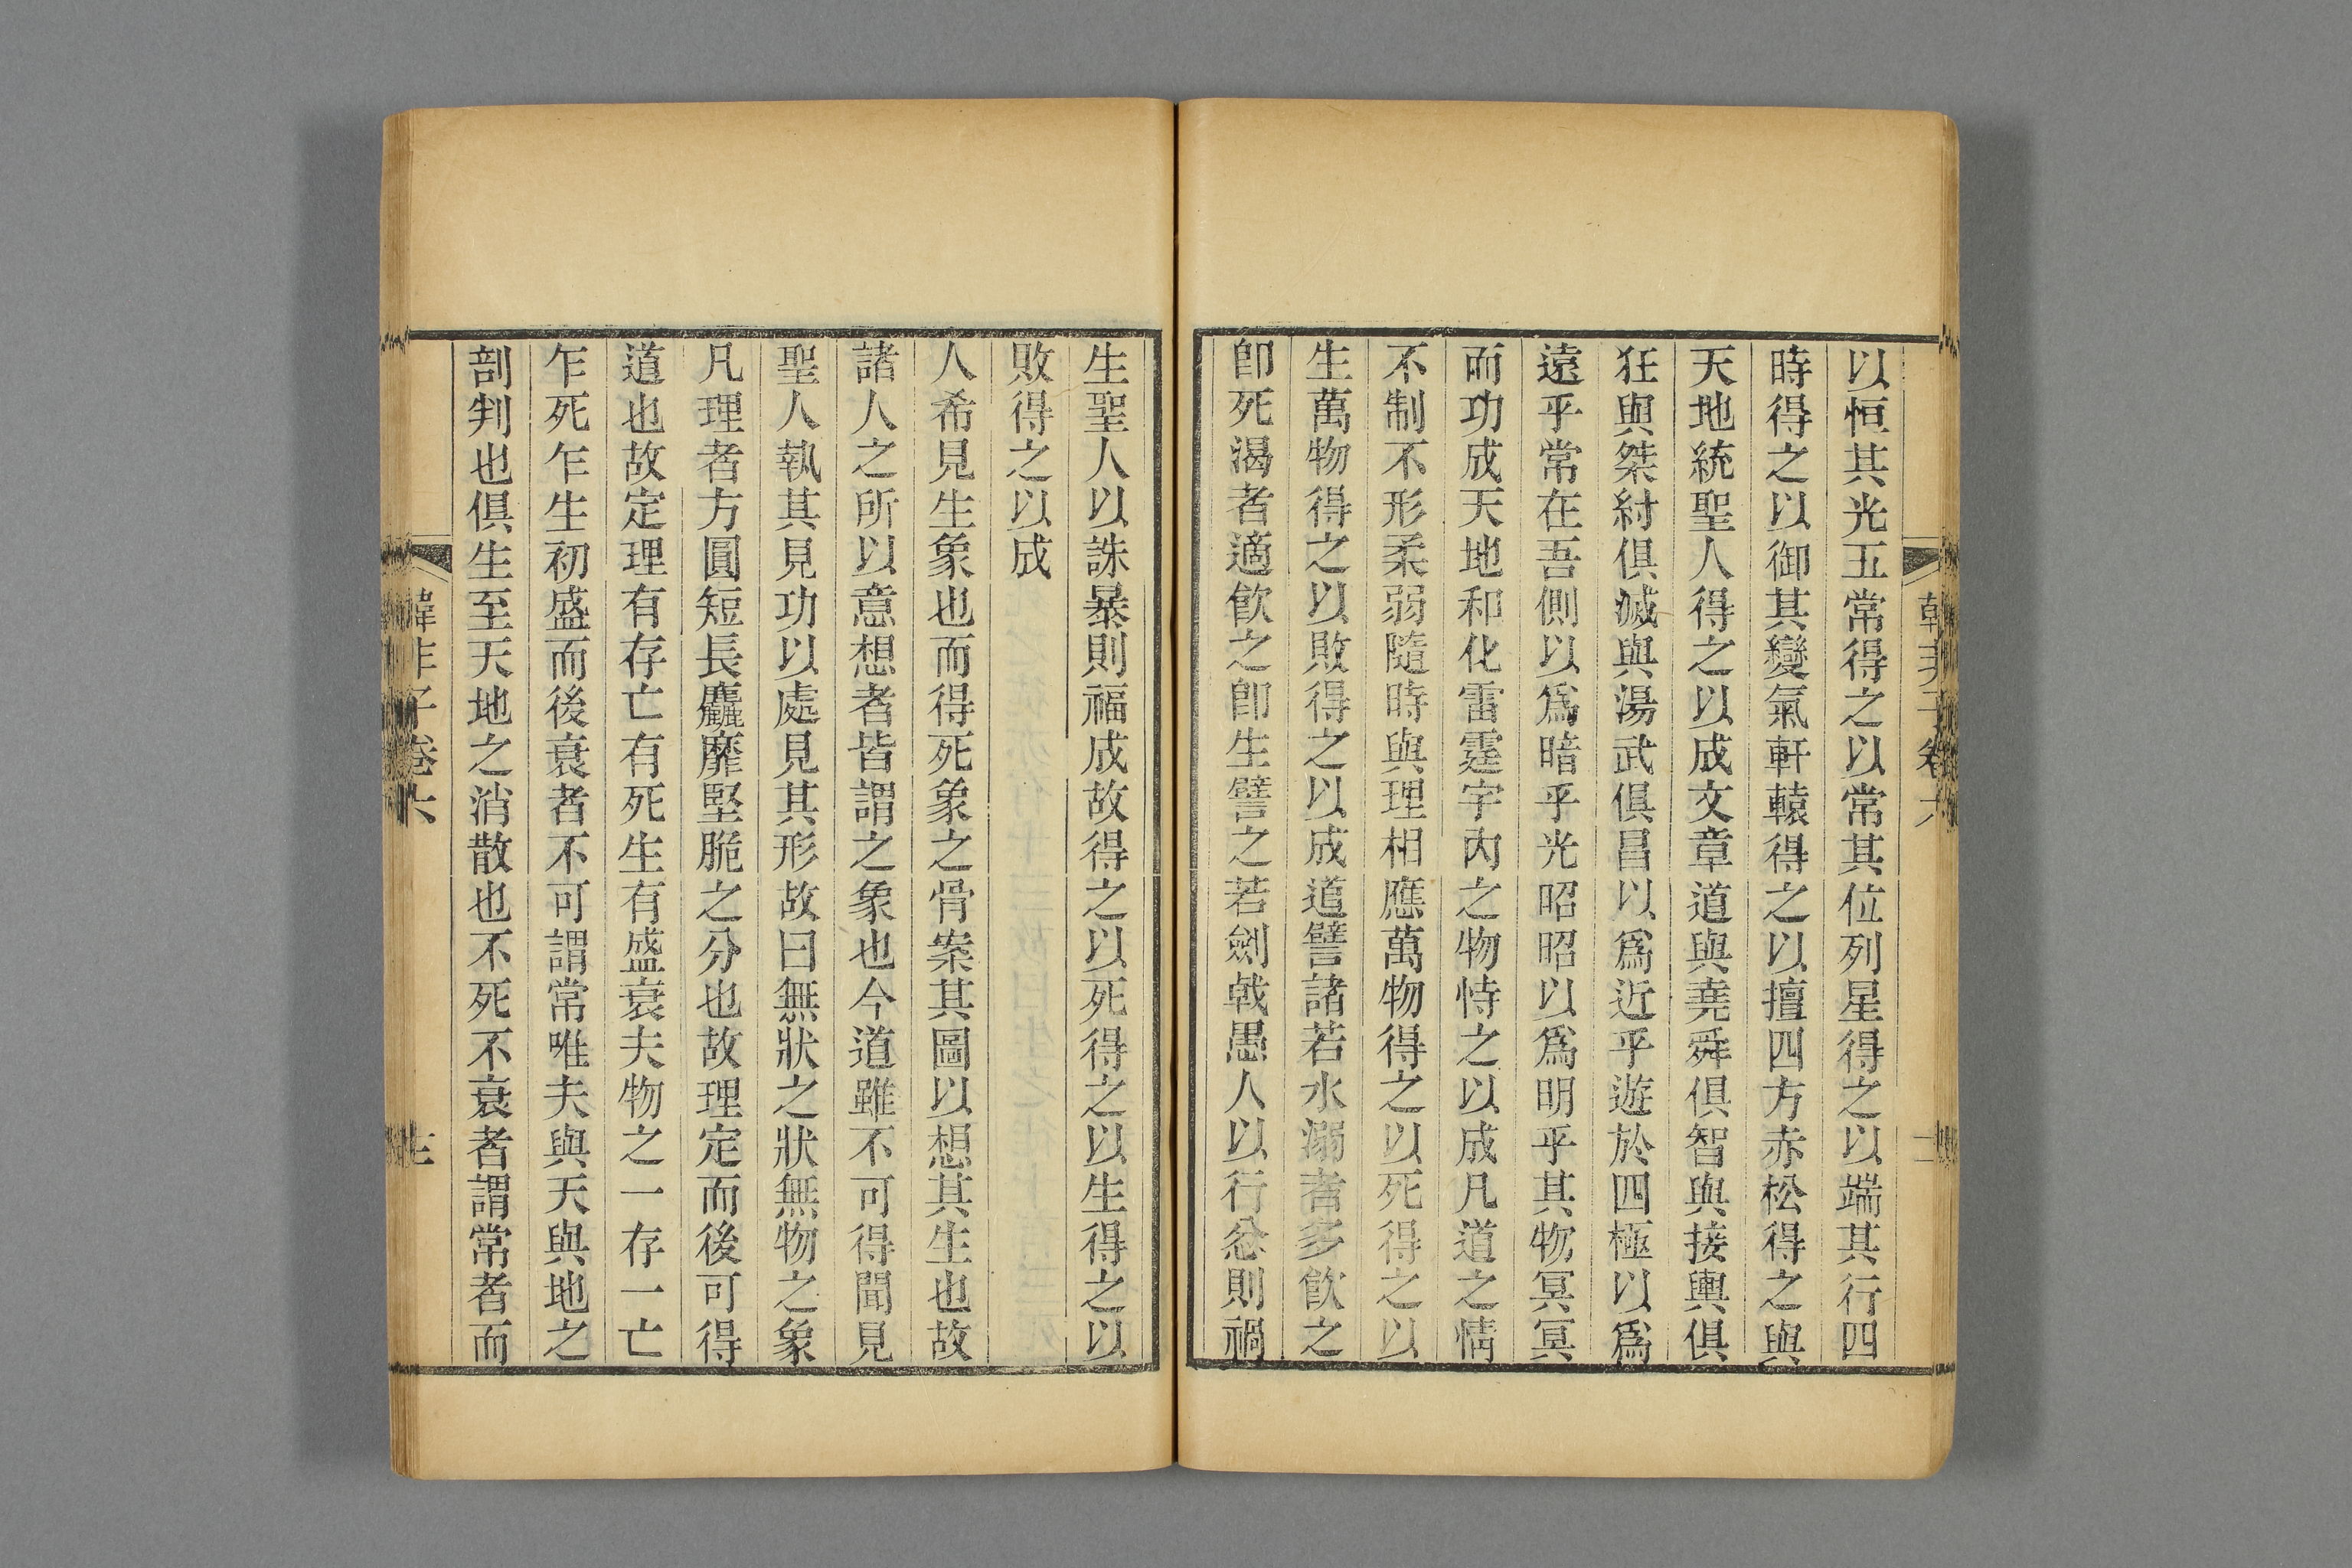 以恒其光五常得之以常其位列星得之以端其行四
時得之以御其變氣軒轅得之以擅四方赤松得之與
天地統聖人得之以成文章道與堯舜俱智與接輿俱
狂與桀紂俱滅與湯武俱昌以爲近乎遊於四極以爲
遠乎常在吾側以爲暗乎光昭昭以爲明乎其物冥冥
而功成天地和化雷霆宇內之物恃之以成凡道之情
不制不形柔弱隨時與理相應萬物得之以死得之以
生萬物得之以敗得之以成道譬諸若水溺者多飲之
卽死渴者適飲之卽生譬之若劍戟愚人以行忿則禍
生聖人以誅暴則福成故得之以死得之以生得之以
敗得之以成
人希見生象也而得死象之骨案其圖以想其生也故
諸人之所以意想者皆謂之象也今道雖不可得聞見
聖人執其見功以處見其形故曰無狀之狀無物之象
凡理者方圓短長麤靡堅脆之分也故理定而後可得
道也故定理有存亡有死生有盛衰夫物之一存一亡
乍死乍生初盛而後衰者不可謂常唯夫與天與地之
剖判也俱生至天地之消散也不死不衰者謂常者而
韓非子卷六